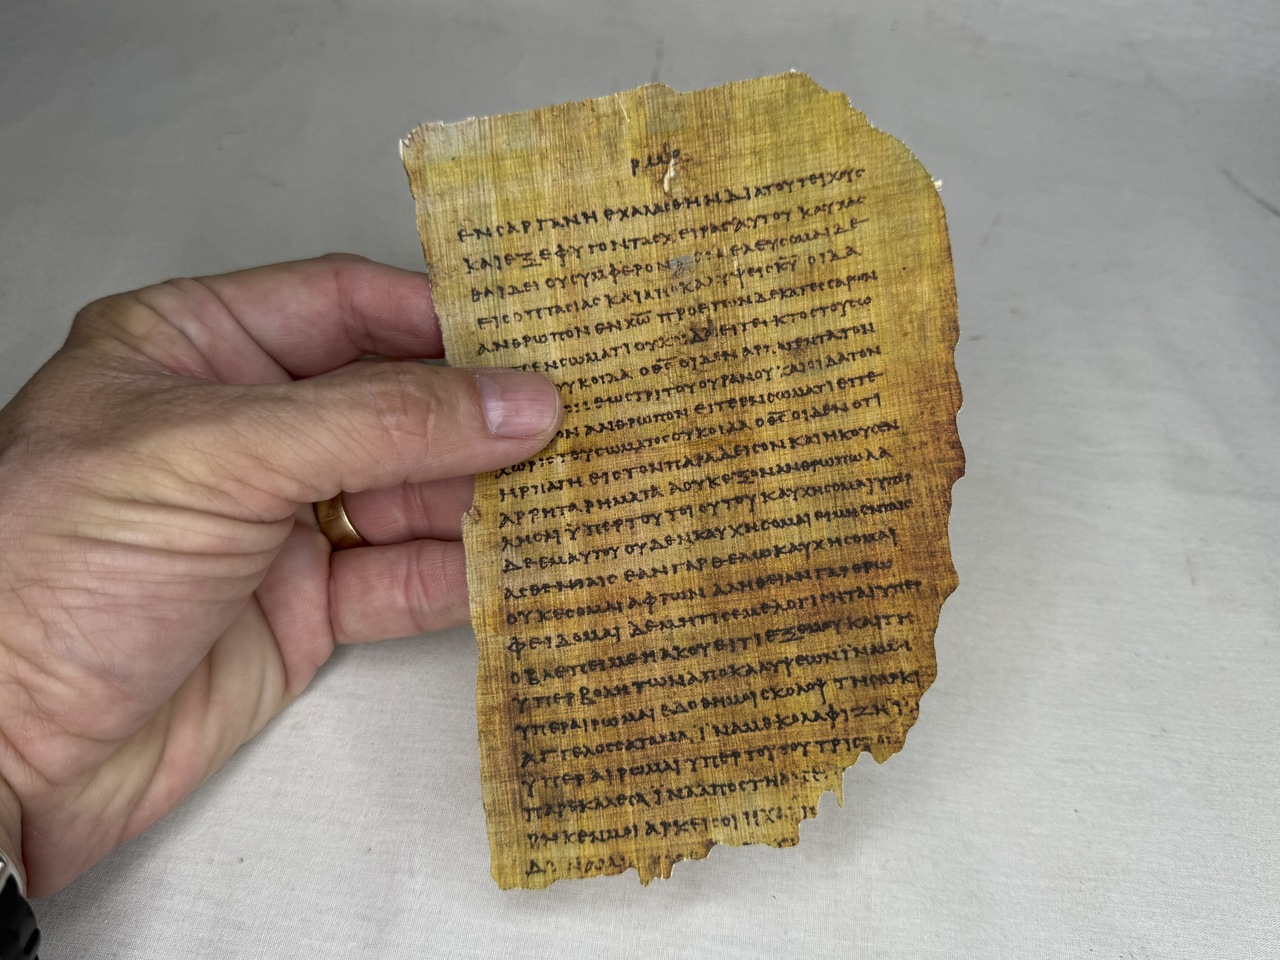 ΕΝ ϹΑΡΓΑΝΗ ΕΧΑΛΑϹΘΗΝ ΔΙΑ ΤΟΥ ΤΕΙΧΟΥϹ
ΚΑΙ ΕΞΕΦΥΓΟΝ ΤΑϹ ΧΕΙΡΑϹ ΑΥΤΟΥ ΚΑΥΧΑϹ
ΘΑΙ ΔΕΙ ΟΥ ϹΥΜΦΕΡΟΝ ΕΛΕΥϹΟΜΑΙ ΔΕ
ΕΙϹ ΟΠΤΑϹΙΑϹ ΚΑΙ ΑΠΟΚΑΛΥΨΕΙϹ Κ̅Υ̅ ΟΙΔΑ
ΑΝΘΡΩΠΟΝ ΕΝ Χ̅Ω̅ ΠΡΟ ΕΤΩΝ ΔΕΚΑΤΕϹϹΑΡΩΝ
ΕΝ ϹΩΜΑΤΙ ΟΥΚ ΕΙΤΕ ΕΚΤΟϹ ΤΟΥ ϹΩ
ΟΥΚ ΟΙΔΑ Ο Θ̅Ϲ̅ ΟΙΔΕΝ ΑΡΠΑΓΕΝΤΑ ΤΟΝ
ΕΩϹ ΤΡΙΤΟΥ ΟΥΡΑΝΟΥ ΚΑΙ ΟΙΔΑ ΤΟΝ
ΑΝΘΡΩΠΟΝ ΕΙΤΕ ΕΝ ϹΩΜΑΤΙ ΕΙΤΕ
ΧΩΡΙϹ ΤΟΥ ϹΩΜΑΤΟϹ ΟΥΚ ΟΙΔΑ Ο Θ̅Ϲ̅ ΟΙΔΕΝ ΟΤΙ
ΗΡΠΑΓΗ ΕΙϹ ΤΟΝ ΠΑΡΑΔΕΙϹΟΝ ΚΑΙ ΗΚΟΥϹΕΝ
ΑΡΡΗΤΑ ΡΗΜΑΤΑ Α ΟΥΚ ΕΞΟΝ ΑΝΘΡΩΠΩ ΛΑ
ΛΗϹΑΙ ΫΠΕΡ ΤΟΥ ΤΟΙΟΥΤΟΥ ΚΑΥΧΗϹΟΜΑΙ ΥΠΕΡ
ΔΕ ΕΜΑΥΤΟΥ ΟΥΔΕΝ ΚΑΥΧΗϹΟΜΑΙ ΕΙ ΜΗ ΕΝ ΤΑΙϹ
ΑϹΘΕΝΕΙΑΙϹ ΕΑΝ ΓΑΡ ΘΕΛΩ ΚΑΥΧΗϹΟΜΑΙ
ΟΥΚ ΕϹΟΜΑΙ ΑΦΡΩΝ ΑΛΗΘΕΙΑΝ ΓΑΡ ΕΡΩ
ΦΕΙΔΟΜΑΙ ΔΕ ΜΗ ΤΙϹ ΕΜΕ ΛΟΓΙϹΗΤΑΙ ΥΠΕΡ
Ο ΒΛΕΠΕΙ ΜΕ Η ΑΚΟΥΕΙ ΤΙ ΕΞ ΕΜΟΥ ΚΑΙ ΤΗ
ΥΠΕΡΒΟΛΗ ΤΩΝ ΑΠΟΚΑΛΥΨΕΩΝ ΙΝΑ ΜΗ
ΥΠΕΡΑΙΡΩΜΑΙ ΕΔΟΘΗ ΜΟΙ ϹΚΟΛΟΨ ΤΗ ϹΑΡΚΙ
ΑΓΓΕΛΟϹ ϹΑΤΑΝΑ ΙΝΑ ΜΕ ΚΟΛΑΦΙΖΗ
ΥΠΕΡΑΙΡΩΜΑΙ ΥΠΕΡ ΤΟΥΤΟΥ ΤΡΙϹ
ΠΑΡΕΚΑΛΕϹΑ ΙΝΑ ΑΠΟϹΤΗ
ΡΗΚΕΝ ΜΟΙ ΑΡΚΕΙ ϹΟΙ Η